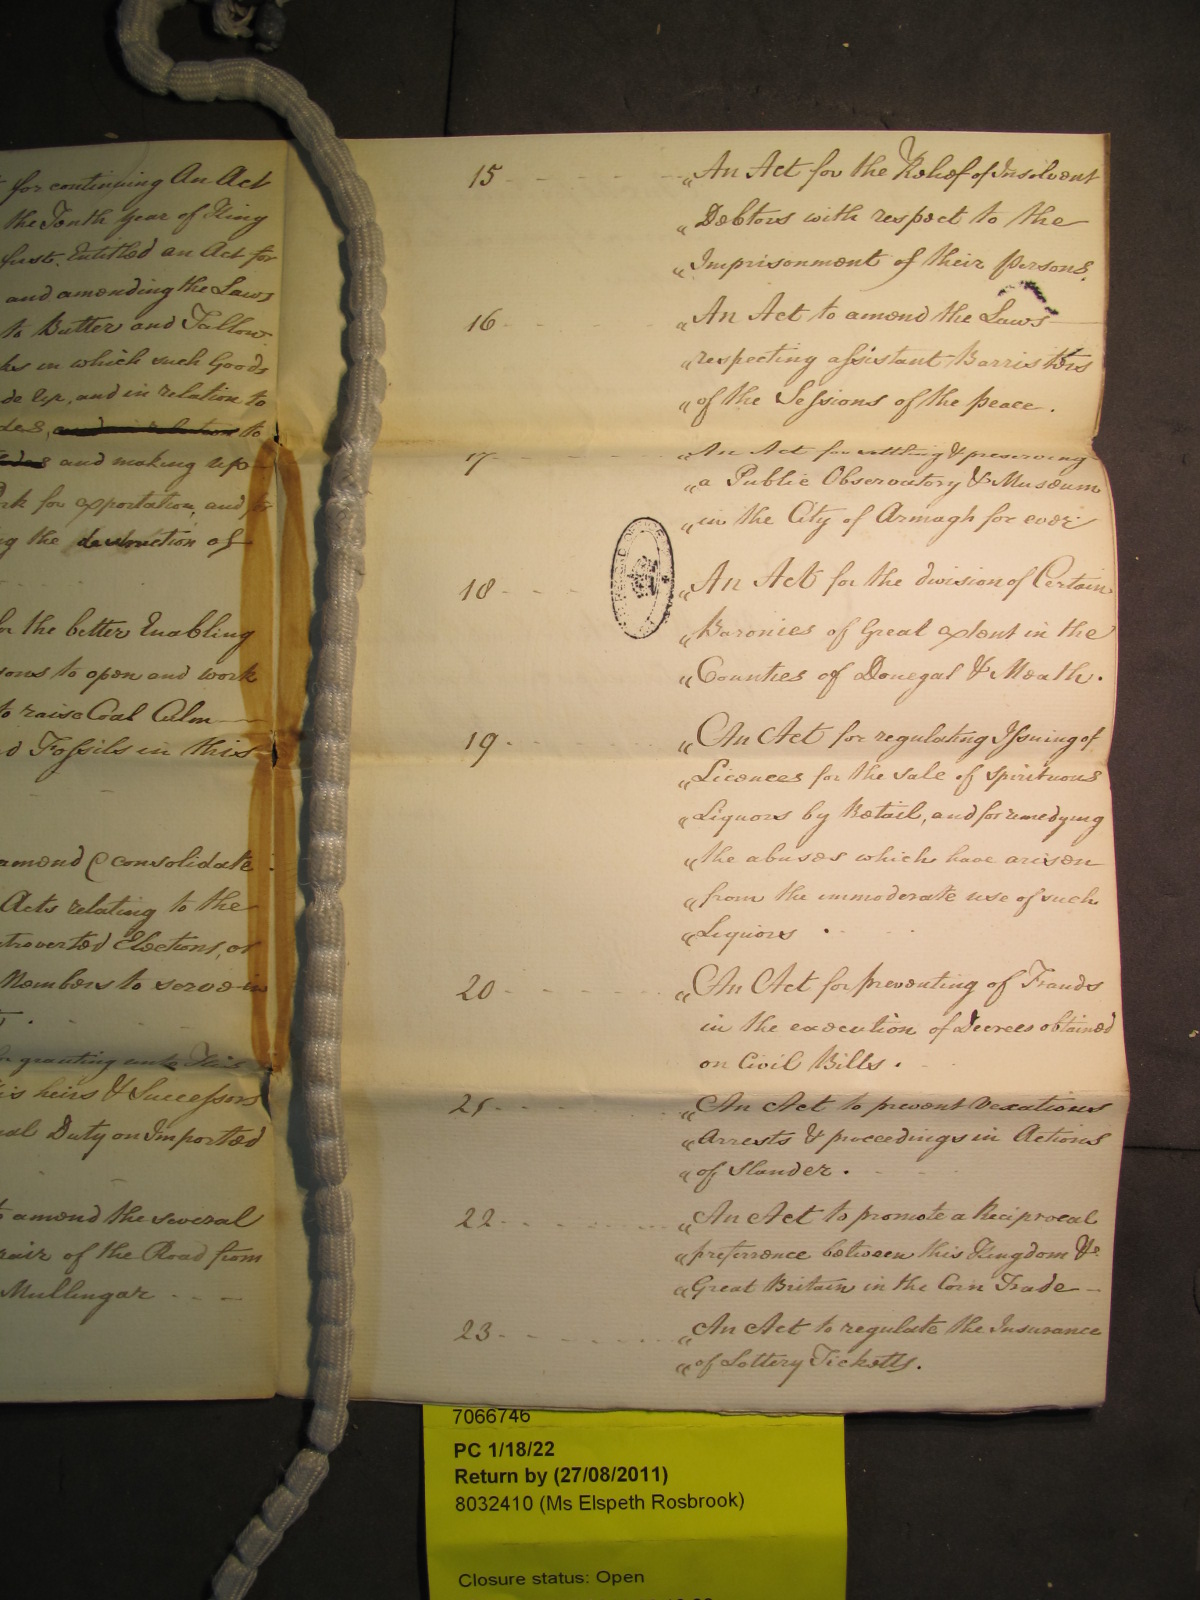 for continuing An Act
the Tenth year of King
first. Entitled an Act for
and amending the Laws
to Butter and Tallow.
in which such Goods
up, and in relation to
and in relation to
and making up
for exportation, and
the destruction of
the better Enabling
to open and work
to raise Coal Culm
Fossils in this
amend & consolidate
Acts relating to the
Elections, or
Members to serve in
granting unto His
heirs & Successors
Duty on Imported
amend the several
of the Road from
Mullingar - - -
15 - - - - - „An Act for the Relief of Insolvent
„Debtors with respect to the
„Imprisonment of their persons.
16 - - - - „An Act to amend the Laws
„respecting assistant Barristers
„of the Sessions of the peace.
17 - - - - „An Act for settling & preserving
„a Public Observatory & Museum
„in the City of Armagh for ever
18 - - - „An Act for the division of Certain
„Baronies of Great extent in the
„Counties of Donegal & Meath.
19 - - - - „An Act for regulating Issuing of
„Licences for the sale of spirituous
„Liquors by Retail, and for remedying
„the abuses which have arisen
„from the immoderate use of such
„Liquors .
20 - - - - „An Act for preventing of Frauds
in the execution of Decrees obtained
on Civil Bills .
21 - - - - „An Act to prevent vexatious
„Arrests & proceedings in Actions
„of slander .
22 - - - - „An Act to promote a Reciprocal
„preferrence between this Kingdom &
„Great Britain in the Corn Trade -
23 - - - - „An Act to regulate the Insurance
„of Lottery Ticketts.
7066746
PC 1/18/22
Return by (27/08/2011)
8032410 (Ms Elspeth Rosbrook)
Closure status: Open